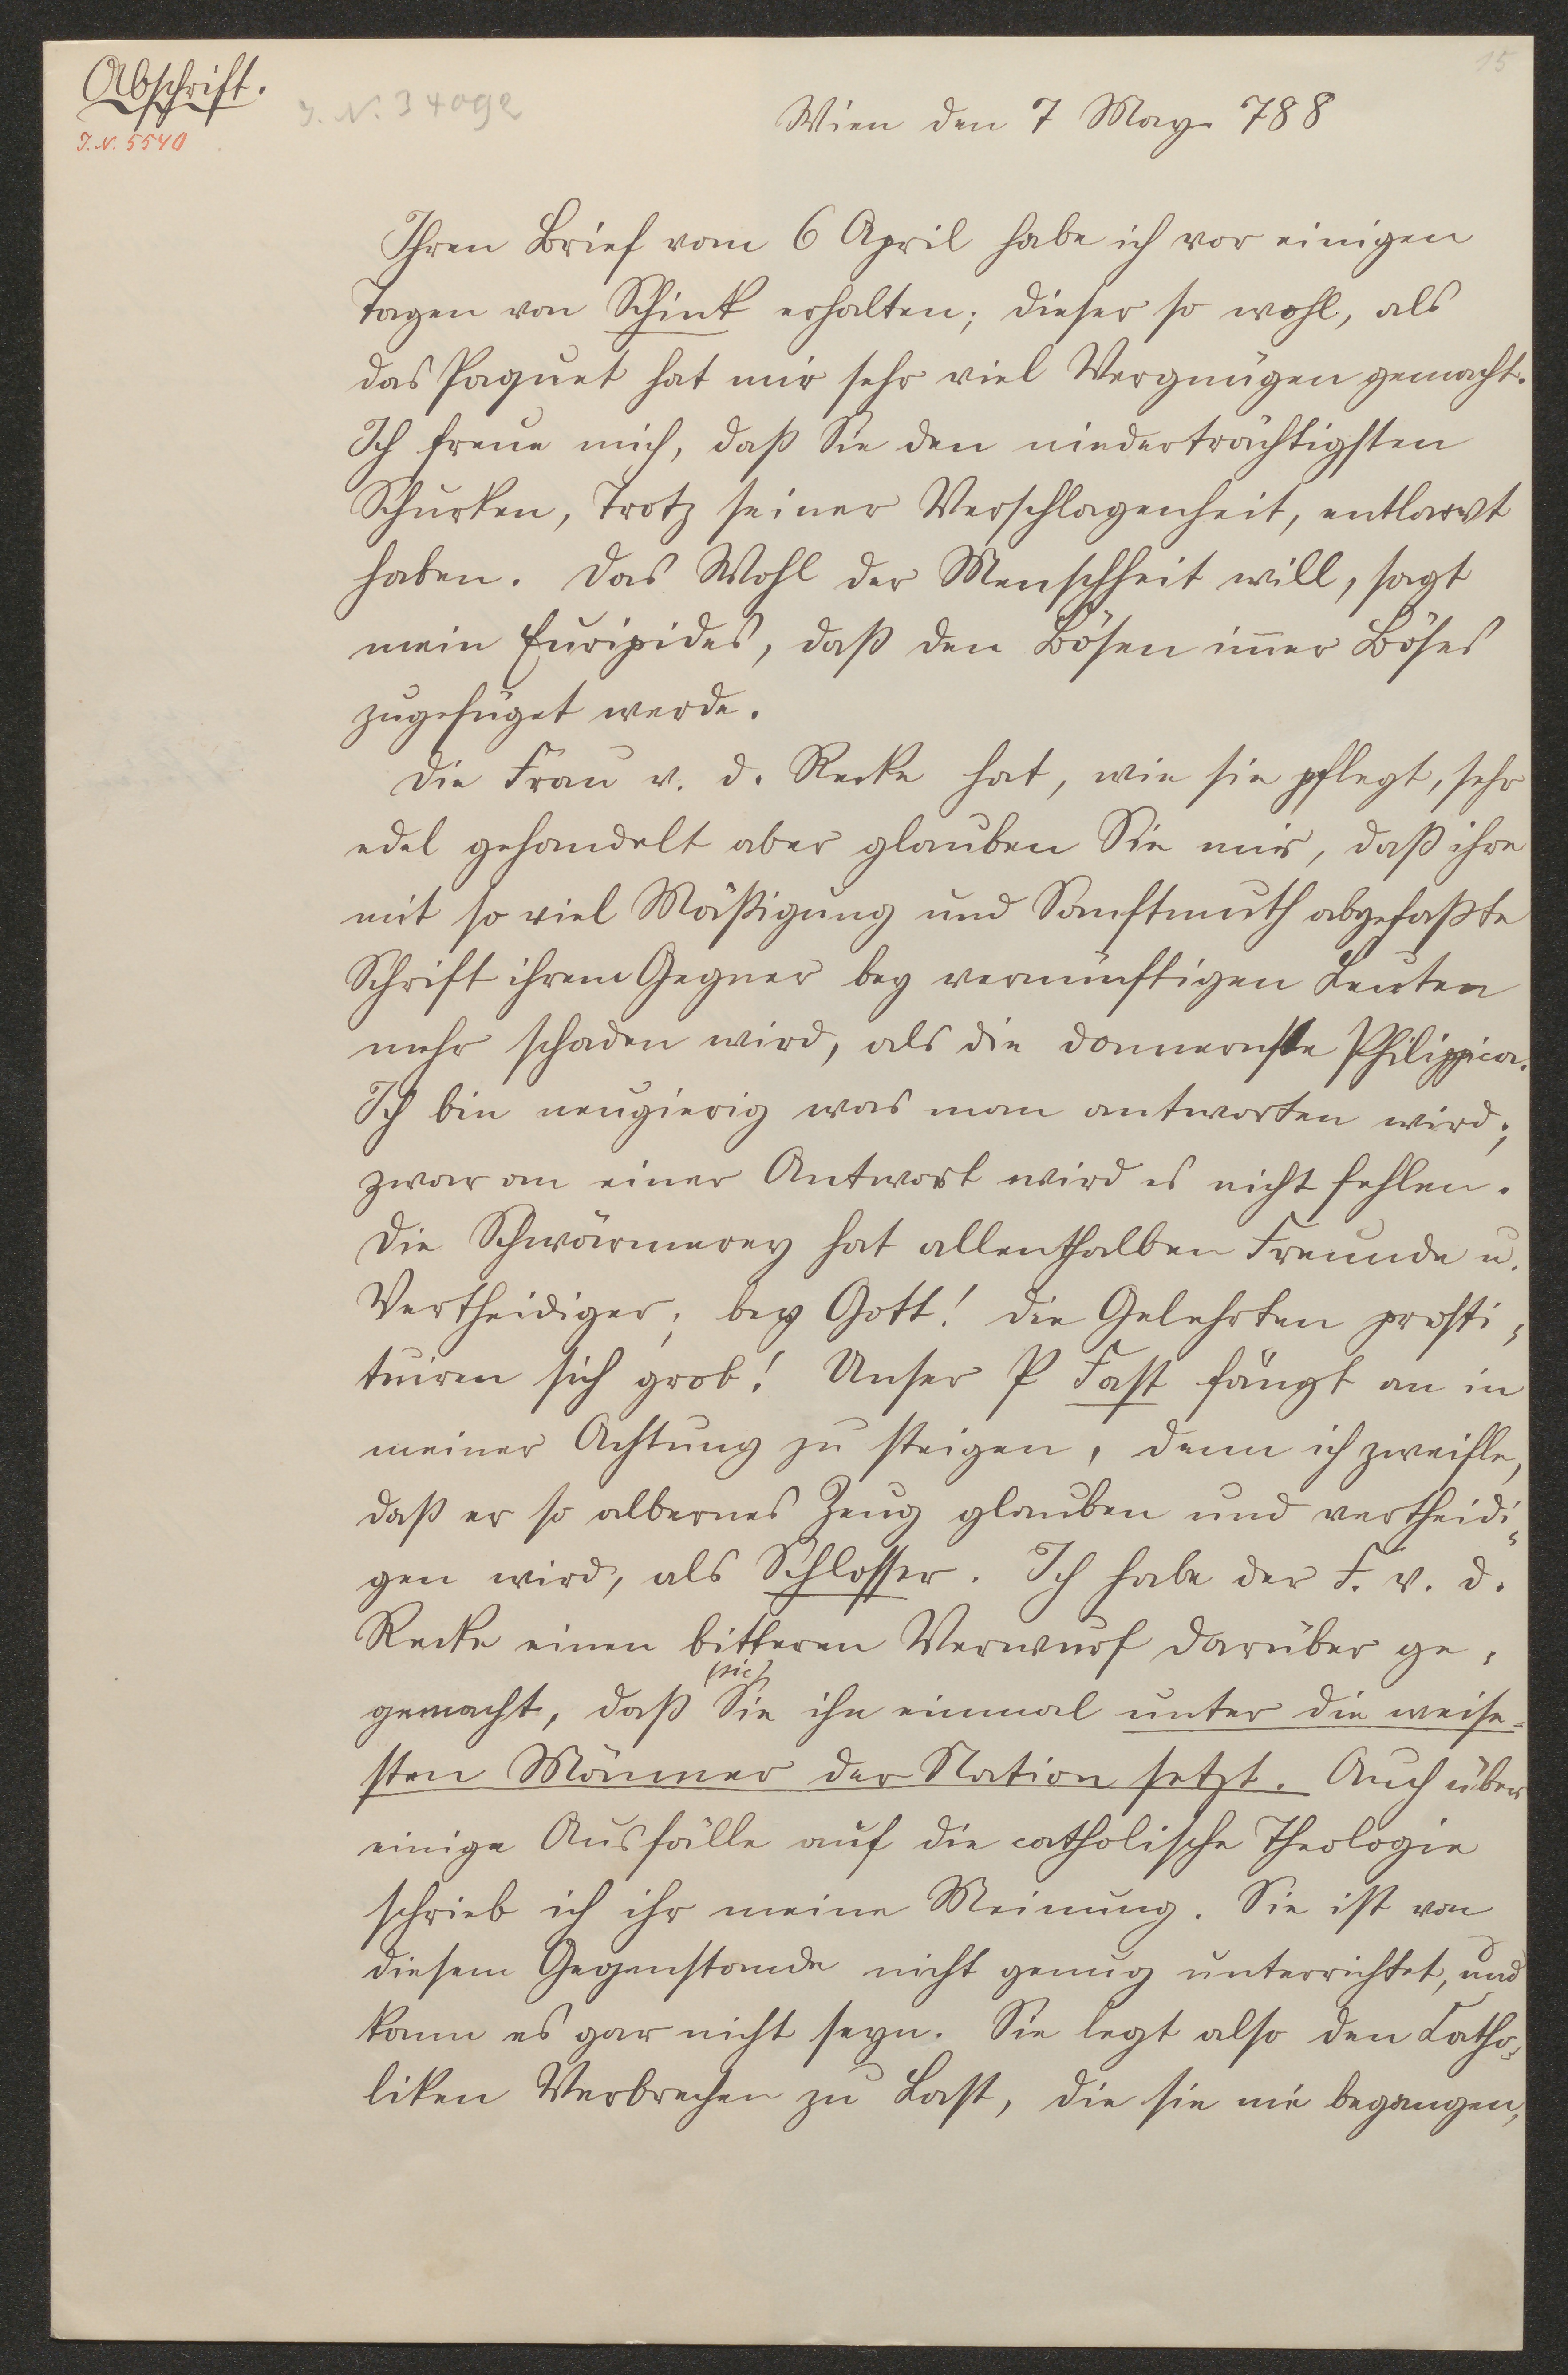 Abschrift.
J. N. 5540
15
Wien den 7 May 788
Ihren Brief vom 6 April habe ich vor einigen
Tagen von Schink erhalten; dieser so wohl, als
das Paquet hat mir sehr viel Vergnügen gemacht.
Ich freue mich, daß Sie den niederträchtigsten
Schurken, Trotz seiner Verschlagenheit, entlarvt
haben. Das Wohl der Menschheit will, sagt
mein Euripides, daß den Bösen im̅er Böses
zugefüget werde.
Die Frau v. d. Recke hat, wie sie pflegt, sehr
edel gehandelt aber glauben Sie mir, daß ihre
mit so viel Mäßigung und Sanftmuth abgefaßte
Schrift ihrem Gegner bey vernünftigen Leuten
mehr schaden wird, als die donnernste Philippica.
Ich bin neugierig was man antworten wird;
zwar an einer Antwort wird es nicht fehlen.
Die Schwärmerey hat allenthalben Freunde u.
Vertheidiger; bey Gott! die Gelehrten prosti-
tuiren sich grob! Unser P Fast fängt an in
meiner Achtung zu steigen, denn ich zweifle,
daß er so albernes Zeug glauben und vertheidi-
gen wird, als Schlosser. Ich habe der F. v. d.
Recke einen bitteren Verwurf darüber ge-
(sic)
gemacht, daß Sie ihn einmal unter die weise-
sten Männer der Nation setzt. Auch über
einige Ausfälle auf die catholische Theologie
schrieb ich ihr meine Meinung. Sie ist von
diesem Gegenstande nicht genug unterrichtet, und
kann es gar nicht seyn. Sie legt also den Catho-
liken Verbrechen zu Last, die sie nie begangen,